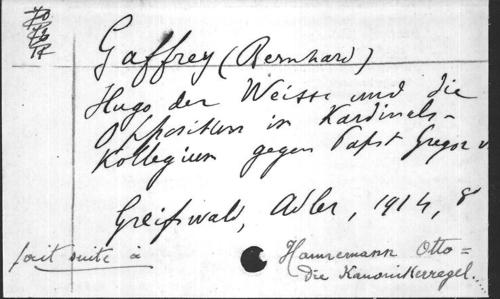 Gaffrey (Bernhard)
Hugo der Weisse und die
Opposition in Kardinals-
Kollegium gegen Papst Gregor V
Greifswald, Adler, 1914, 8
fait suite à
Hannemann Otto=
die Kanonikerregel..